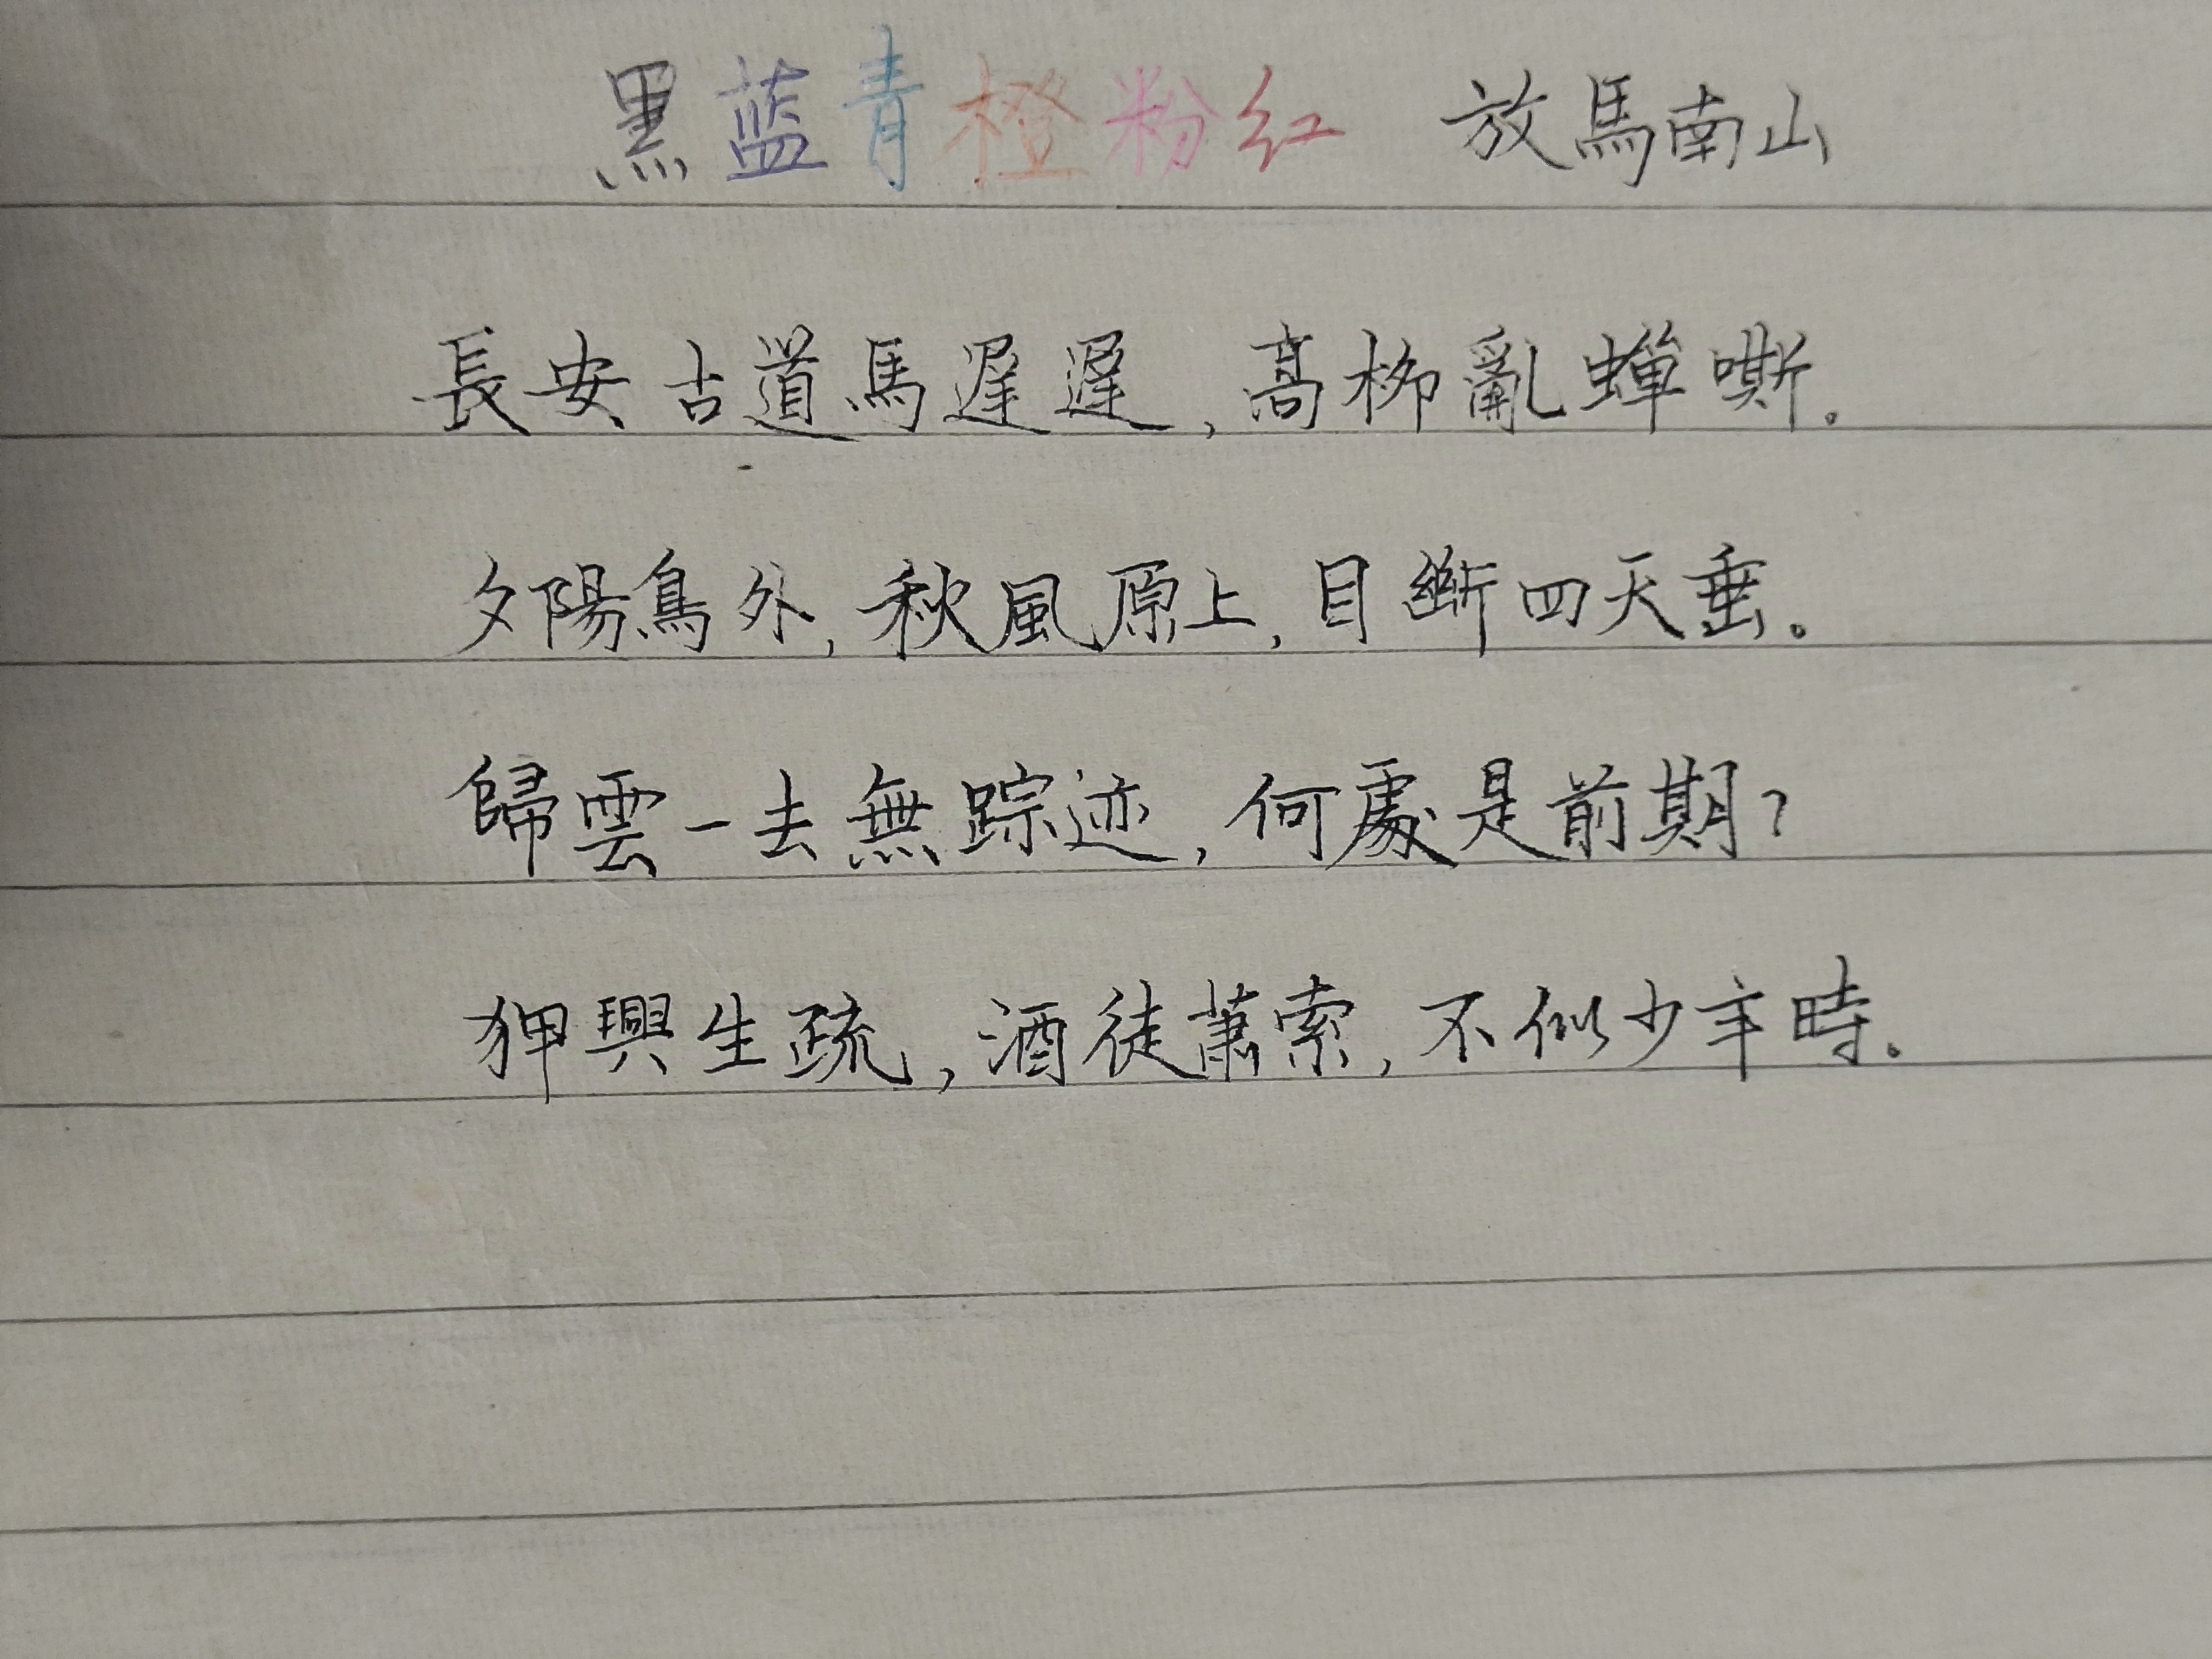 黑蓝青橙粉红 放馬南山
長安古道馬遲遲,高栁亂蟬嘶。
夕陽鳥外,秋風原上,目斷四天垂。
歸雲一去無踪迹,何處是前期?
狎興生疏,酒徒蕭索,不似少年時。